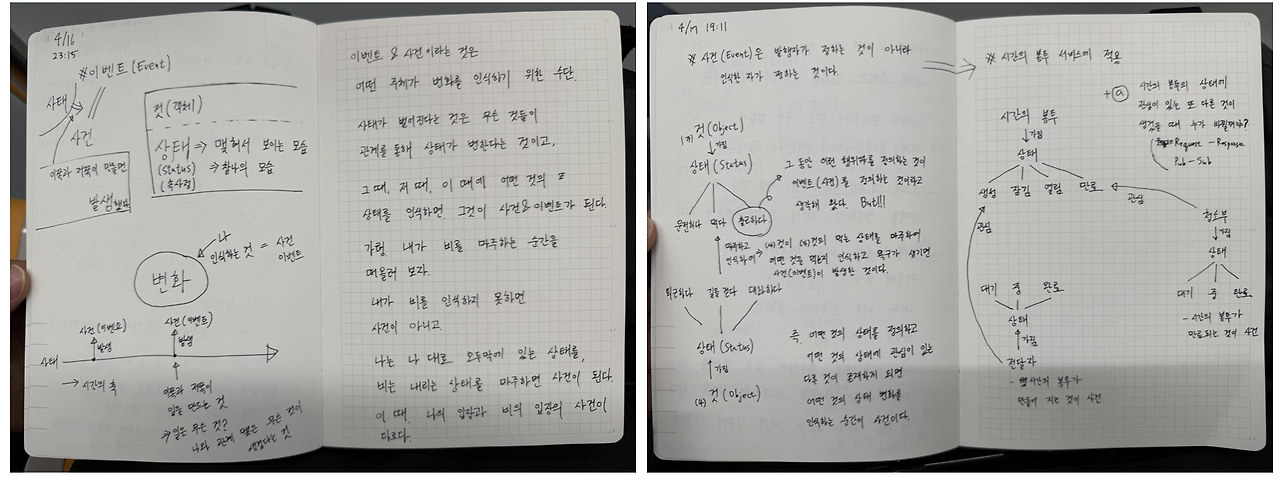 4/16
23:15
※이벤트(Event)
사태
사건
이쪽과 저쪽이 만들면
발생했다
것(객체)
상태 ⇒ 맺혀서 보이는 모습
(status) ⇒ 찰나의 모습
나
인식하는 것 = 사건
이벤트
변화
사건(이벤트) 사건(이벤트)
발생 발생
상태
→ 시간의 축
이쪽과 저쪽이
일을 만드는 것
⇒ 일은 무슨 것?
나와 관계 맺는 무슨 것이
생겼다는 것
이벤트 & 사건이라는 것은
어떤 주체가 변화를 인식하기 위한 수단.
사태가 벌어진다는 것은 무슨 것들이
관계를 통해 상태가 변한다는 것이고,
그 때, 저 때, 이 때에 어떤 것의
상태를 인식하면 그것이 사건&이벤트가 된다.
가령 내가 비를 마주하는 순간을
떠올려 보자.
내가 비를 인식하지 못하면
사건이 아니고.
나는 나 대로 오두막에 있는 상태를,
비는 내리는 상태를 마주하면 사건이 된다.
이 때, 나의 입장과 비의 입장의 사건이
다르다.
4/17 19:11
※ 사건(Event)은 발행자가 정하는 것이 아니라
인식한 자가 정하는 것이다.
것(Object)
가짐
상태(Status)
운전하다 먹다 출근하다
그 동안 이런 행위파를 정의하는 것이
이벤트(사건)를 정의하는 것이라고
생각해 왔다. But!!!
마주하고
인식하여
것이 것의 먹는 상태를 마주하여
어떤 것을 먹는지 인식하고 욕구가 생기면
사건(이벤트)이 발생한 것이다.
퇴근하다 길을 걷다 대화하다
상태(Status)
가짐
것(Object)
즉, 어떤 것의 상태를 정의하고
어떤 것의 상태에 관심이 있는
다른 것이 존재하게 되면
어떤 것의 상태 변화를
인식하는 순간이 사건이다.
※ 시간의 봉투 서비스에 적용
시간의 봉투
가짐
상태
생성 잠김 열림 만료
관심
관심
대기 중 완료
상태
가짐
전달자
- 시간의 봉투가
만들어 지는 것이 사건
+ⓐ 시간의 봉투의 상태에
관심이 있는 또 다른 것이
생겼을 때 누가 바뀔까?
Request - Response
Pub - Sub
청소부
가짐
상태
대기 중 완료
- 시간의 봉투가
만료되는 것이 사건